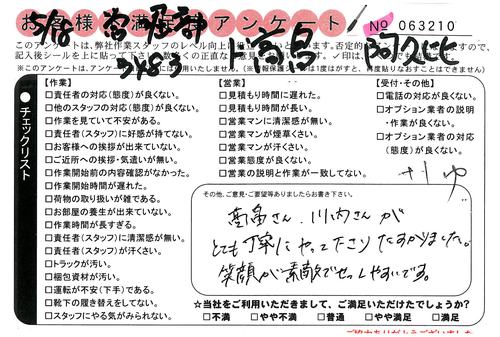 お客様満足度アンケート
No 063210
5/18
このアンケートは、弊社作業スタッフのレベル向上に
記入後シールを上に貼って下さい
チェックリスト
【作業】
□責任者の対応(態度)が良くない。
□他のスタッフの対応(態度)が良くない。
□作業を見ていて不安がある。
□責任者(スタッフ)に好感が持てない。
□お客様への挨拶が出来ていない。
□ご近所への挨拶・気遣いが無い。
□作業開始前の内容確認がなかった。
□作業開始時間が遅れた。
□荷物の取り扱いが雑である。
□お部屋の養生が出来ていない。
□作業時間が長すぎる。
□責任者(スタッフ)に清潔感が無い。
□責任者(スタッフ)が汗くさい。
□トラックが汚い。
□梱包資材が汚い。
□運転が不安(下手)である。
□靴下の履き替えをしてない。
□スタッフにやる気がみられない。
【営業】
□見積もり時間に遅れた。
□見積もり時間が長い。
□営業マンに清潔感が無い。
□営業マンが煙草くさい。
□営業マンが汗くさい。
□営業態度が良くない。
□営業の説明と作業が一致してない。
【受付・その他】
□電話の対応が良くない。
□オプション業者の説明
・作業が良くない。
□オプション業者の対応
(態度)が良くない。
その他、ご意見・ご要望等ありましたらお書き下さい。
高畠さん、川内さんが
とても丁寧にやって下さりたすかりました。
笑顔が素敵でせっしやすいです。
☆当社をご利用いただきまして、ご満足いただけたでしょうか?
□不満 □やや不満 □普通 □やや満足 □満足
ご協力ありがとうございました